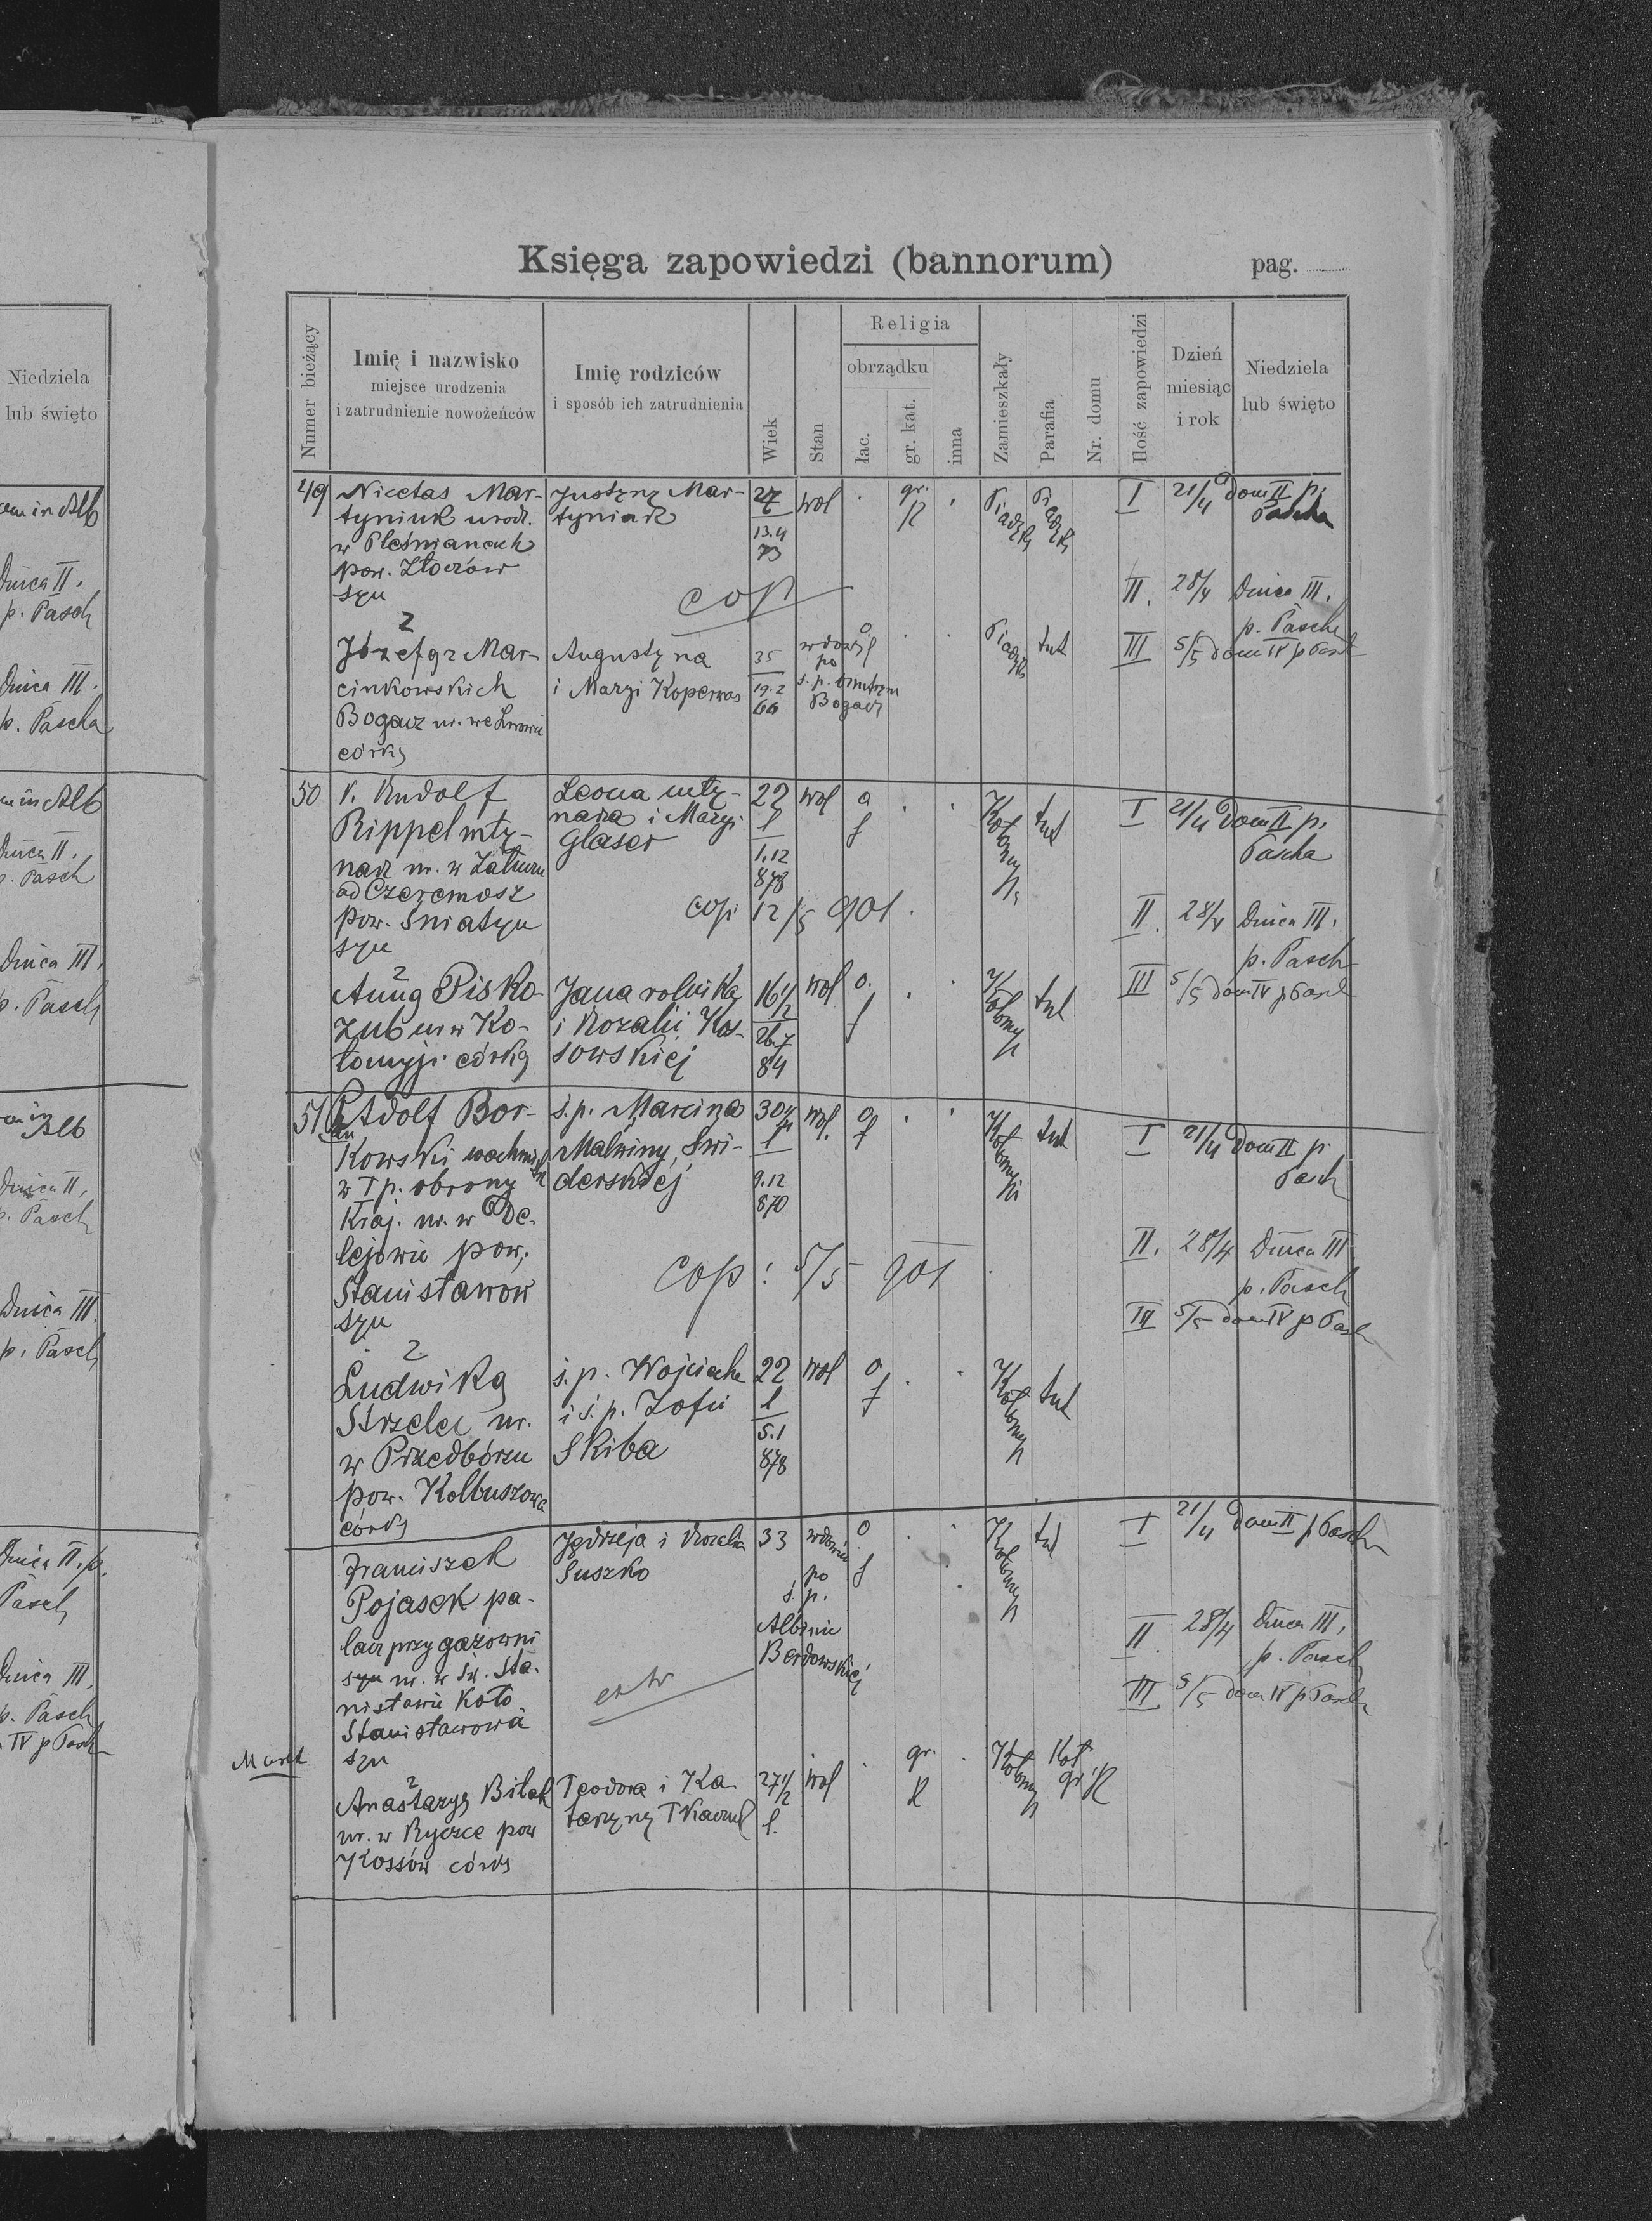 Niedziela
lub święto
Dnica II.
p. Pasch
Dnica III.
p. Pascha
Dnica II.
p. Pasch
Dnica III.
p. Pasch
Dnica II.
p. Pasch
Dnica III.
p. Pasch
Dnica II. p.
Pasch
Dnica III.
p. Pasch
IV p Pasch
Księga zapowiedzi (bannorum)
pag.
Numer bieżący
Imię i nazwisko
miejsce urodzenia
i zatrudnienie nowożeńców
Imię rodziców
i sposób ich zatrudnienia
Wiek
Stan
Religia
obrządku
łac.
gr. kat.
inna
Zamieszkały
Parafia
Nr. domu
Ilość zapowiedzi
Dzień
miesiąc
i rok
Niedziela
lub święto
49 Nicetas Mar- Justyny Mar- 27 wol gr. I 21/4 Dom II p.
tyniuk urodz. tyniak K Pascha
w Pleśnianach 13.4
pow. Złoczów 73
syn cop II. 28/4 Dnica III.
z p. Pascha
Józefą z Mar- Augustyna 35 wdowa po Piadyki tut III 5/5 Dom IV p Pasch
cinkowskich i Maryi Koperwas 19.2 ś. p.
Bogacz ur. we Lwowie 66 Bogacz
córką
50 P. Rudolf Leona mły- 22 wol o Kołomyja tut I 21/4 Dom II p.
Rippel mły- narza i Maryi l ł Pascha
narz ur. w Załuczu Glaser 1.12
ad Czeremosz 878
pow. Śniatyn cop 12/5 901. II. 28/4 Dnica III.
syn p. Pasch
z
Anną Pisko- Jana rolnika 16 1/2 wol o. Kołomyja tut III 5/5 Dom IV p Pasch
zub ur w Ko- i Rozalii Kos- 26.7 ł
łomyji córką sowskiej 84
51 Adolf Bor- ś.p. Marcina 30 wol. o Kołomyja tut I 21/4 Dom II p
kowski wachmistrz Malwiny Świ- l ł Pasch
w I p. obrony derskiej 9.12
kraj. ur. w De- 870
lejowie pow. II. 28/4 Dnica III
Stanisławów cop: 5/5 901 p. Pasch
syn III 5/5 Dom IV p Pasch
z
Ludwiką ś.p. Wojciecha 22 wol o Kołomyja tut
Strzelec ur. i ś.p. Zofii l ł
w Przedbórzu Skiba 5.1
pow. Kolbuszowa 878
córką
Franciszek Jędrzeja i Rozalia 33 wdowiec o Kołomyja tut I 21/4 Dom II p Pasch
Pojasek pa- Suszko po ł
lacz przy gazowni ś.p. II. 28/4 Dnica III.
syn ur. w Św. Sta- Albinie p. Pasch
nisławie koło Berdowskiej III 5/5 Dom IV p Pasch
Stanisławowa
syn
z
Anastazyą Biłak Teodora i Ka- 27 1/2 wol gr. Kołomyja Koł
ur. w Ryczce pow tarzyny Tkaczuk l. K gr. K
Kossów córką